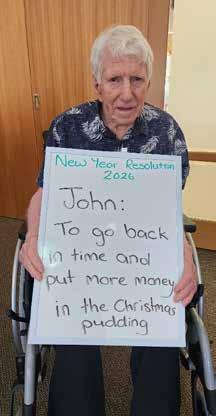 New Year Resolution
2026
John:
To go back
in time and
put more money
in the Christmas
pudding